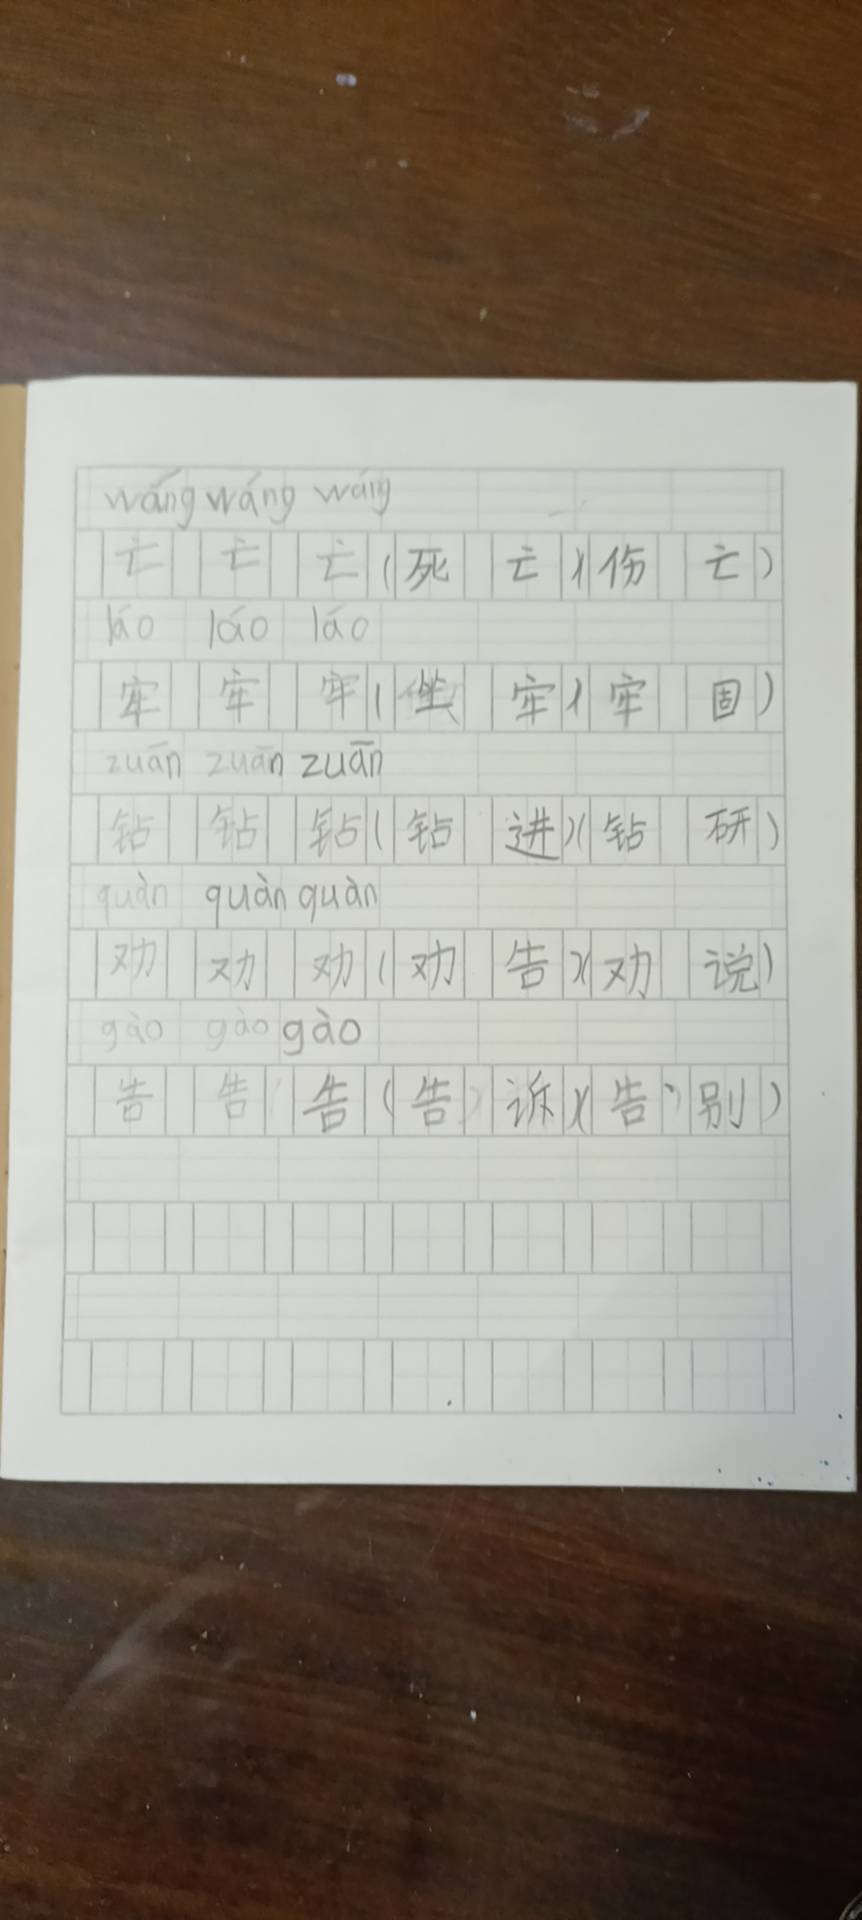 wáng wáng wáng
亡 亡 亡(死 亡)(伤 亡)
láo láo láo
牢 牢 牢(坐 牢)(牢 固)
zuān zuān zuān
钻 钻 钻(钻 进)(钻 研)
quàn quàn quàn
劝 劝 劝(劝 告)(劝 说)
gào gào gào
告 告 告(告 诉)(告 别)